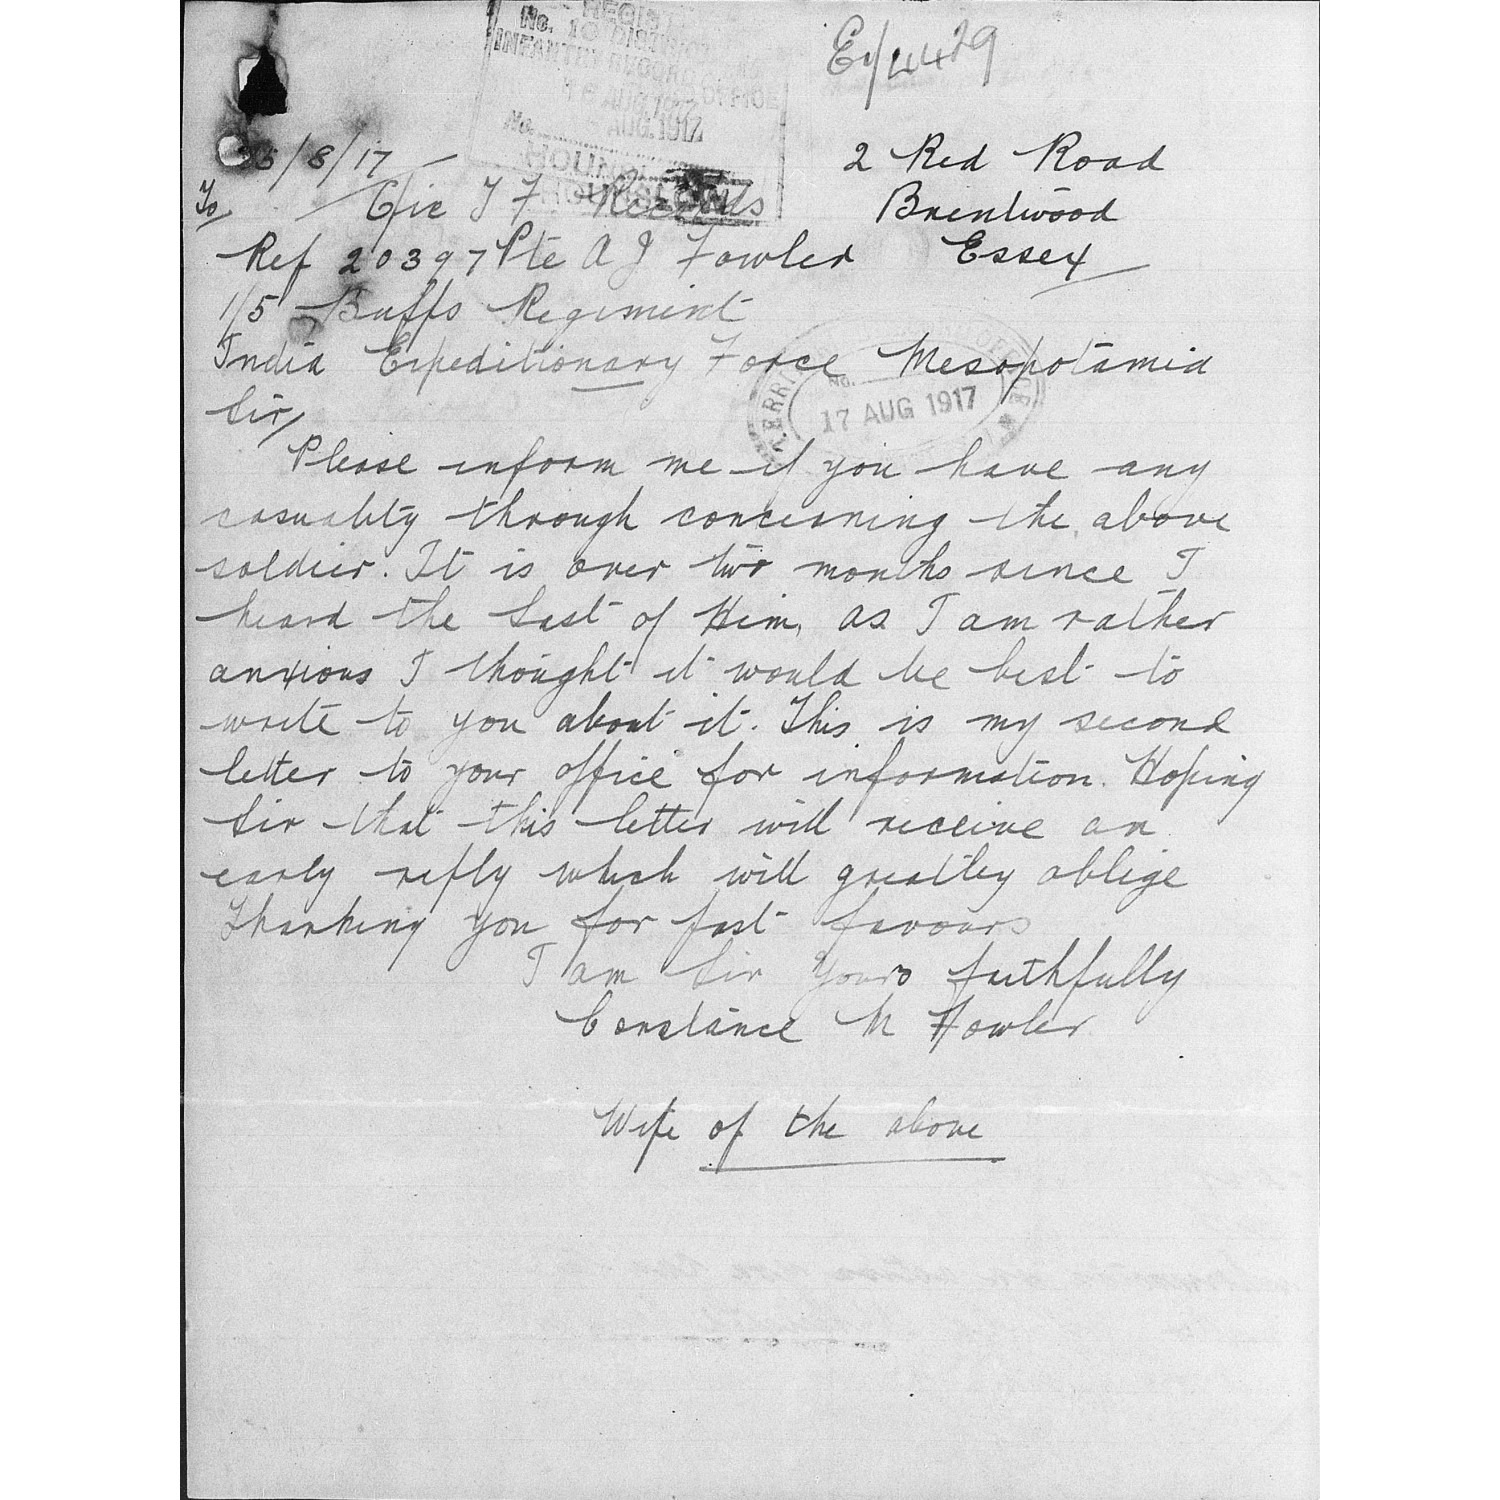 E/4429
REGIST
No. 10 DISTRICT
INFANTRY RECORD OFFICE
16 AUG 1917
AUG. 1917
No.
HOUNSLOW
/8/17
2 Red Road
To
O/ic T F Records
Brentwood
Ref 20397 Pte A J Fowler
Essex
1/5 Buffs Regiment
India Expeditionary Force Mesopotamia
No.
17 AUG 1917
Sir,
Please inform me if you have any
casuality through concerning the above
soldier. It is over two months since I
heard the last of Him, as I am rather
anxious I thought it would be best to
write to you about it. This is my second
letter to your office for information. Hoping
Sir that this letter will receive an
early reply which will greatley oblige
Thanking you for past favours
I am Sir Yours faithfully
Constance M Fowler
Wife of the above